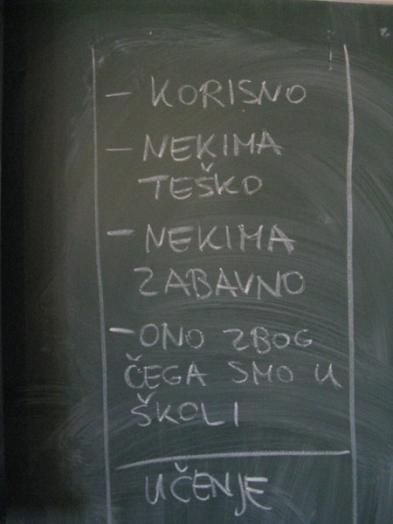 - KORISNO
- NEKIMA
TEŠKO
- NEKIMA
ZABAVNO
- ONO ZBOG
ČEGA SMO U
ŠKOLI
UČENJE